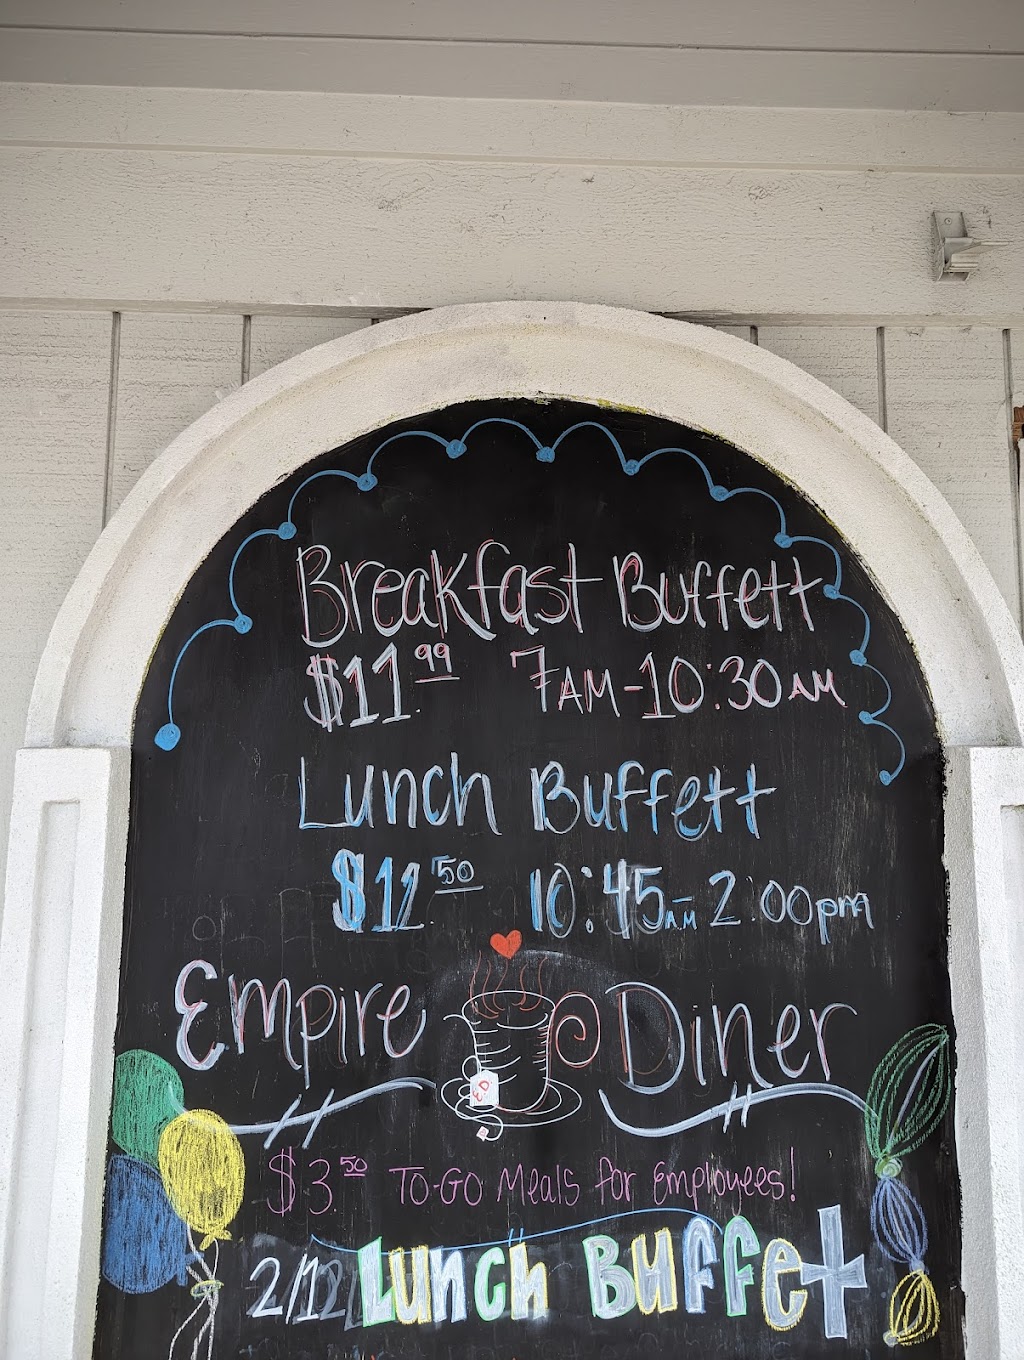 Breakfast Buffett
$11.99 7AM-10:30AM
Lunch Buffett
$12.50 10:45AM-2:00pm
Empire Diner
ED
$3.50 TO-GO Meals for Employees!
2/12 Lunch Buffet